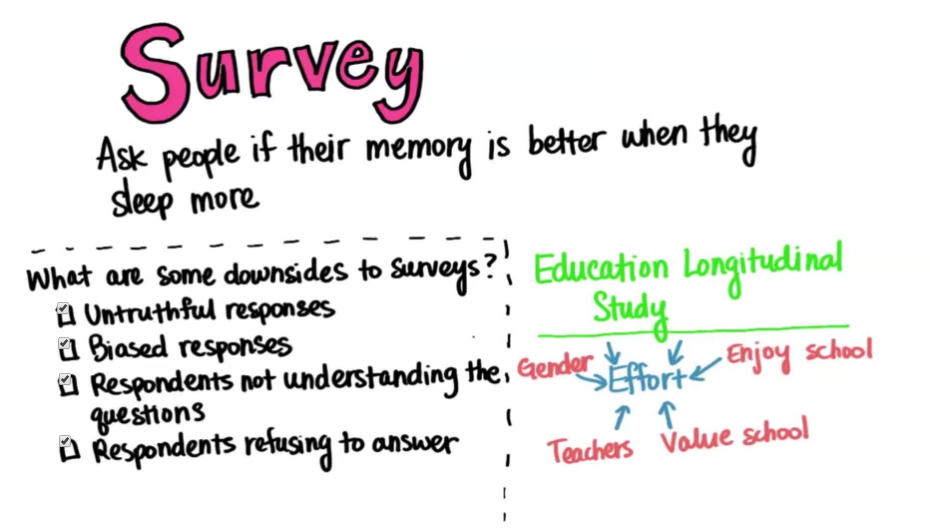 Survey
Ask people if their memory is better when they
sleep more
What are some downsides to surveys?
Untruthful responses
Biased responses
Respondents not understanding the
questions
Respondents refusing to answer
Education Longitudinal
Study
Gender
Effort
Enjoy school
Teachers
Value school